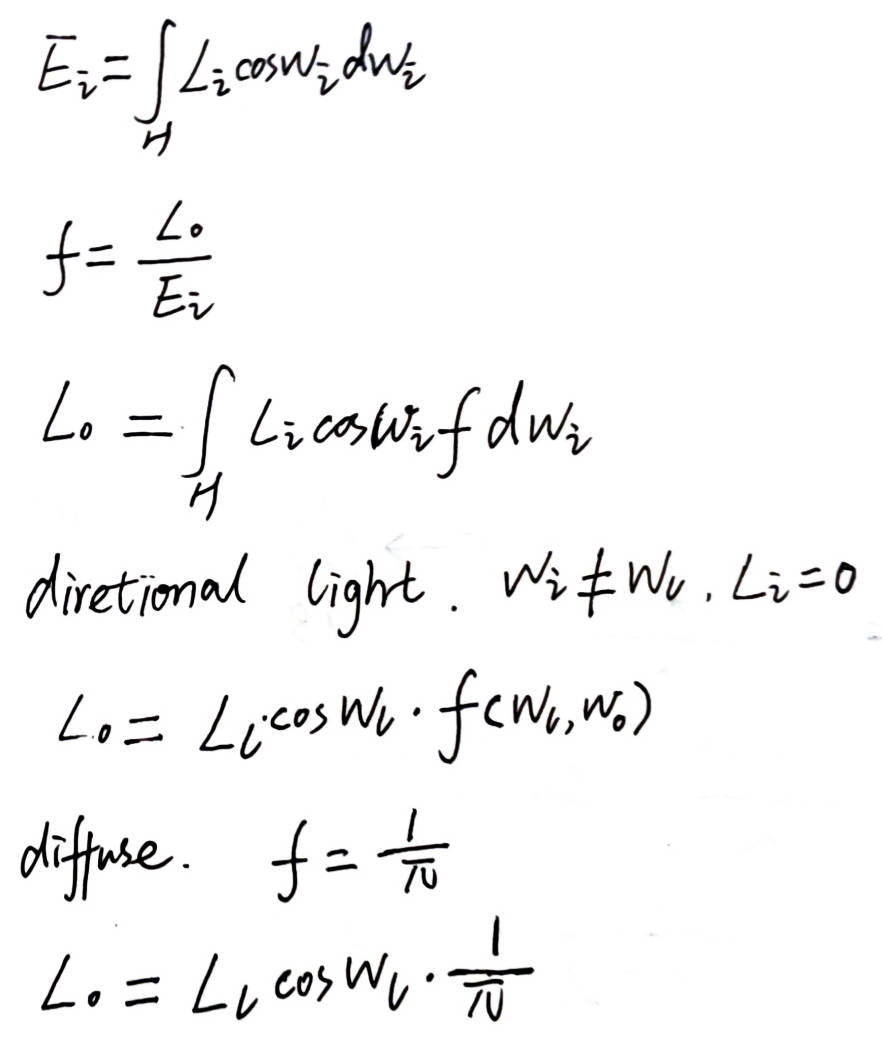 E_i = ∫_H L_i cos w_i dw_i
f = L_o / E_i
L_o = ∫_H L_i cos w_i f dw_i
diretional light. w_i ≠ w_l, L_i = 0
L_o = L_l · cos w_l · f(w_l, w_o)
diffuse. f = 1/π
L_o = L_l cos w_l · 1/π